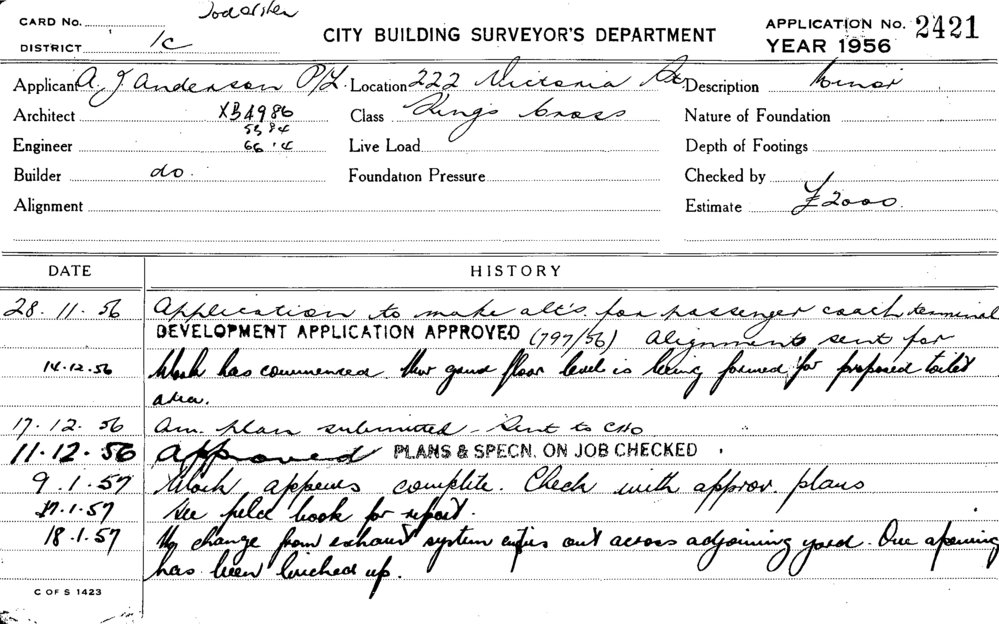 CARD No.
DISTRICT 1c
CITY BUILDING SURVEYOR'S DEPARTMENT
APPLICATION No. 2421
YEAR 1956
Applicant A. J Anderson P/L. Location 222 Victoria St Description Minor
Architect XBA986 Class Kings Cross Nature of Foundation
5584
Engineer Live Load Depth of Footings
Builder do. Foundation Pressure Checked by
Alignment Estimate £2000.
DATE HISTORY
28.11.56 Application to make alt's. for passenger coach terminal
DEVELOPMENT APPLICATION APPROVED (797/56) Alignment sent for
14.12.56 Work has commenced. New floor level is being formed for proposed toilet
area.
17.12.56 Am. plan submitted - Sent to CHO
11.12.56 Approved PLANS & SPECN. ON JOB CHECKED
9.1.57 Work appears complete. Check with approv. plans
17.1.57 See field book for report.
18.1.57 No change from exhaust system out across adjoining yard. One opening
has been bricked up.
C OF S 1423